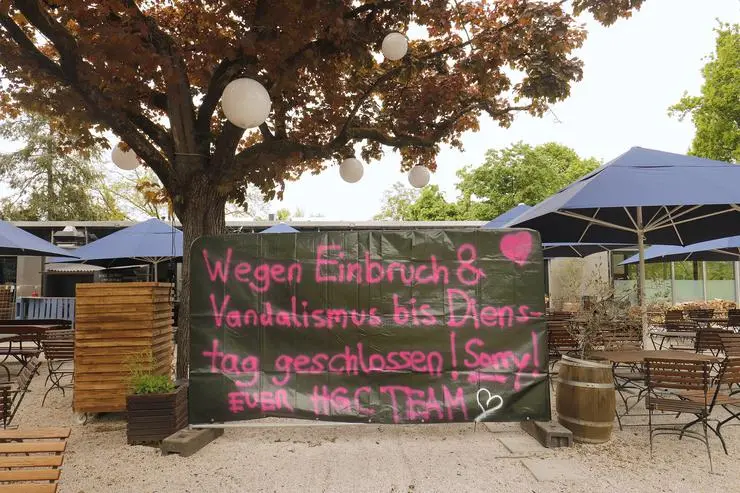 Wegen Einbruch &
Vandalismus bis Diens-
tag geschlossen! Sorry!
EUER HGC TEAM